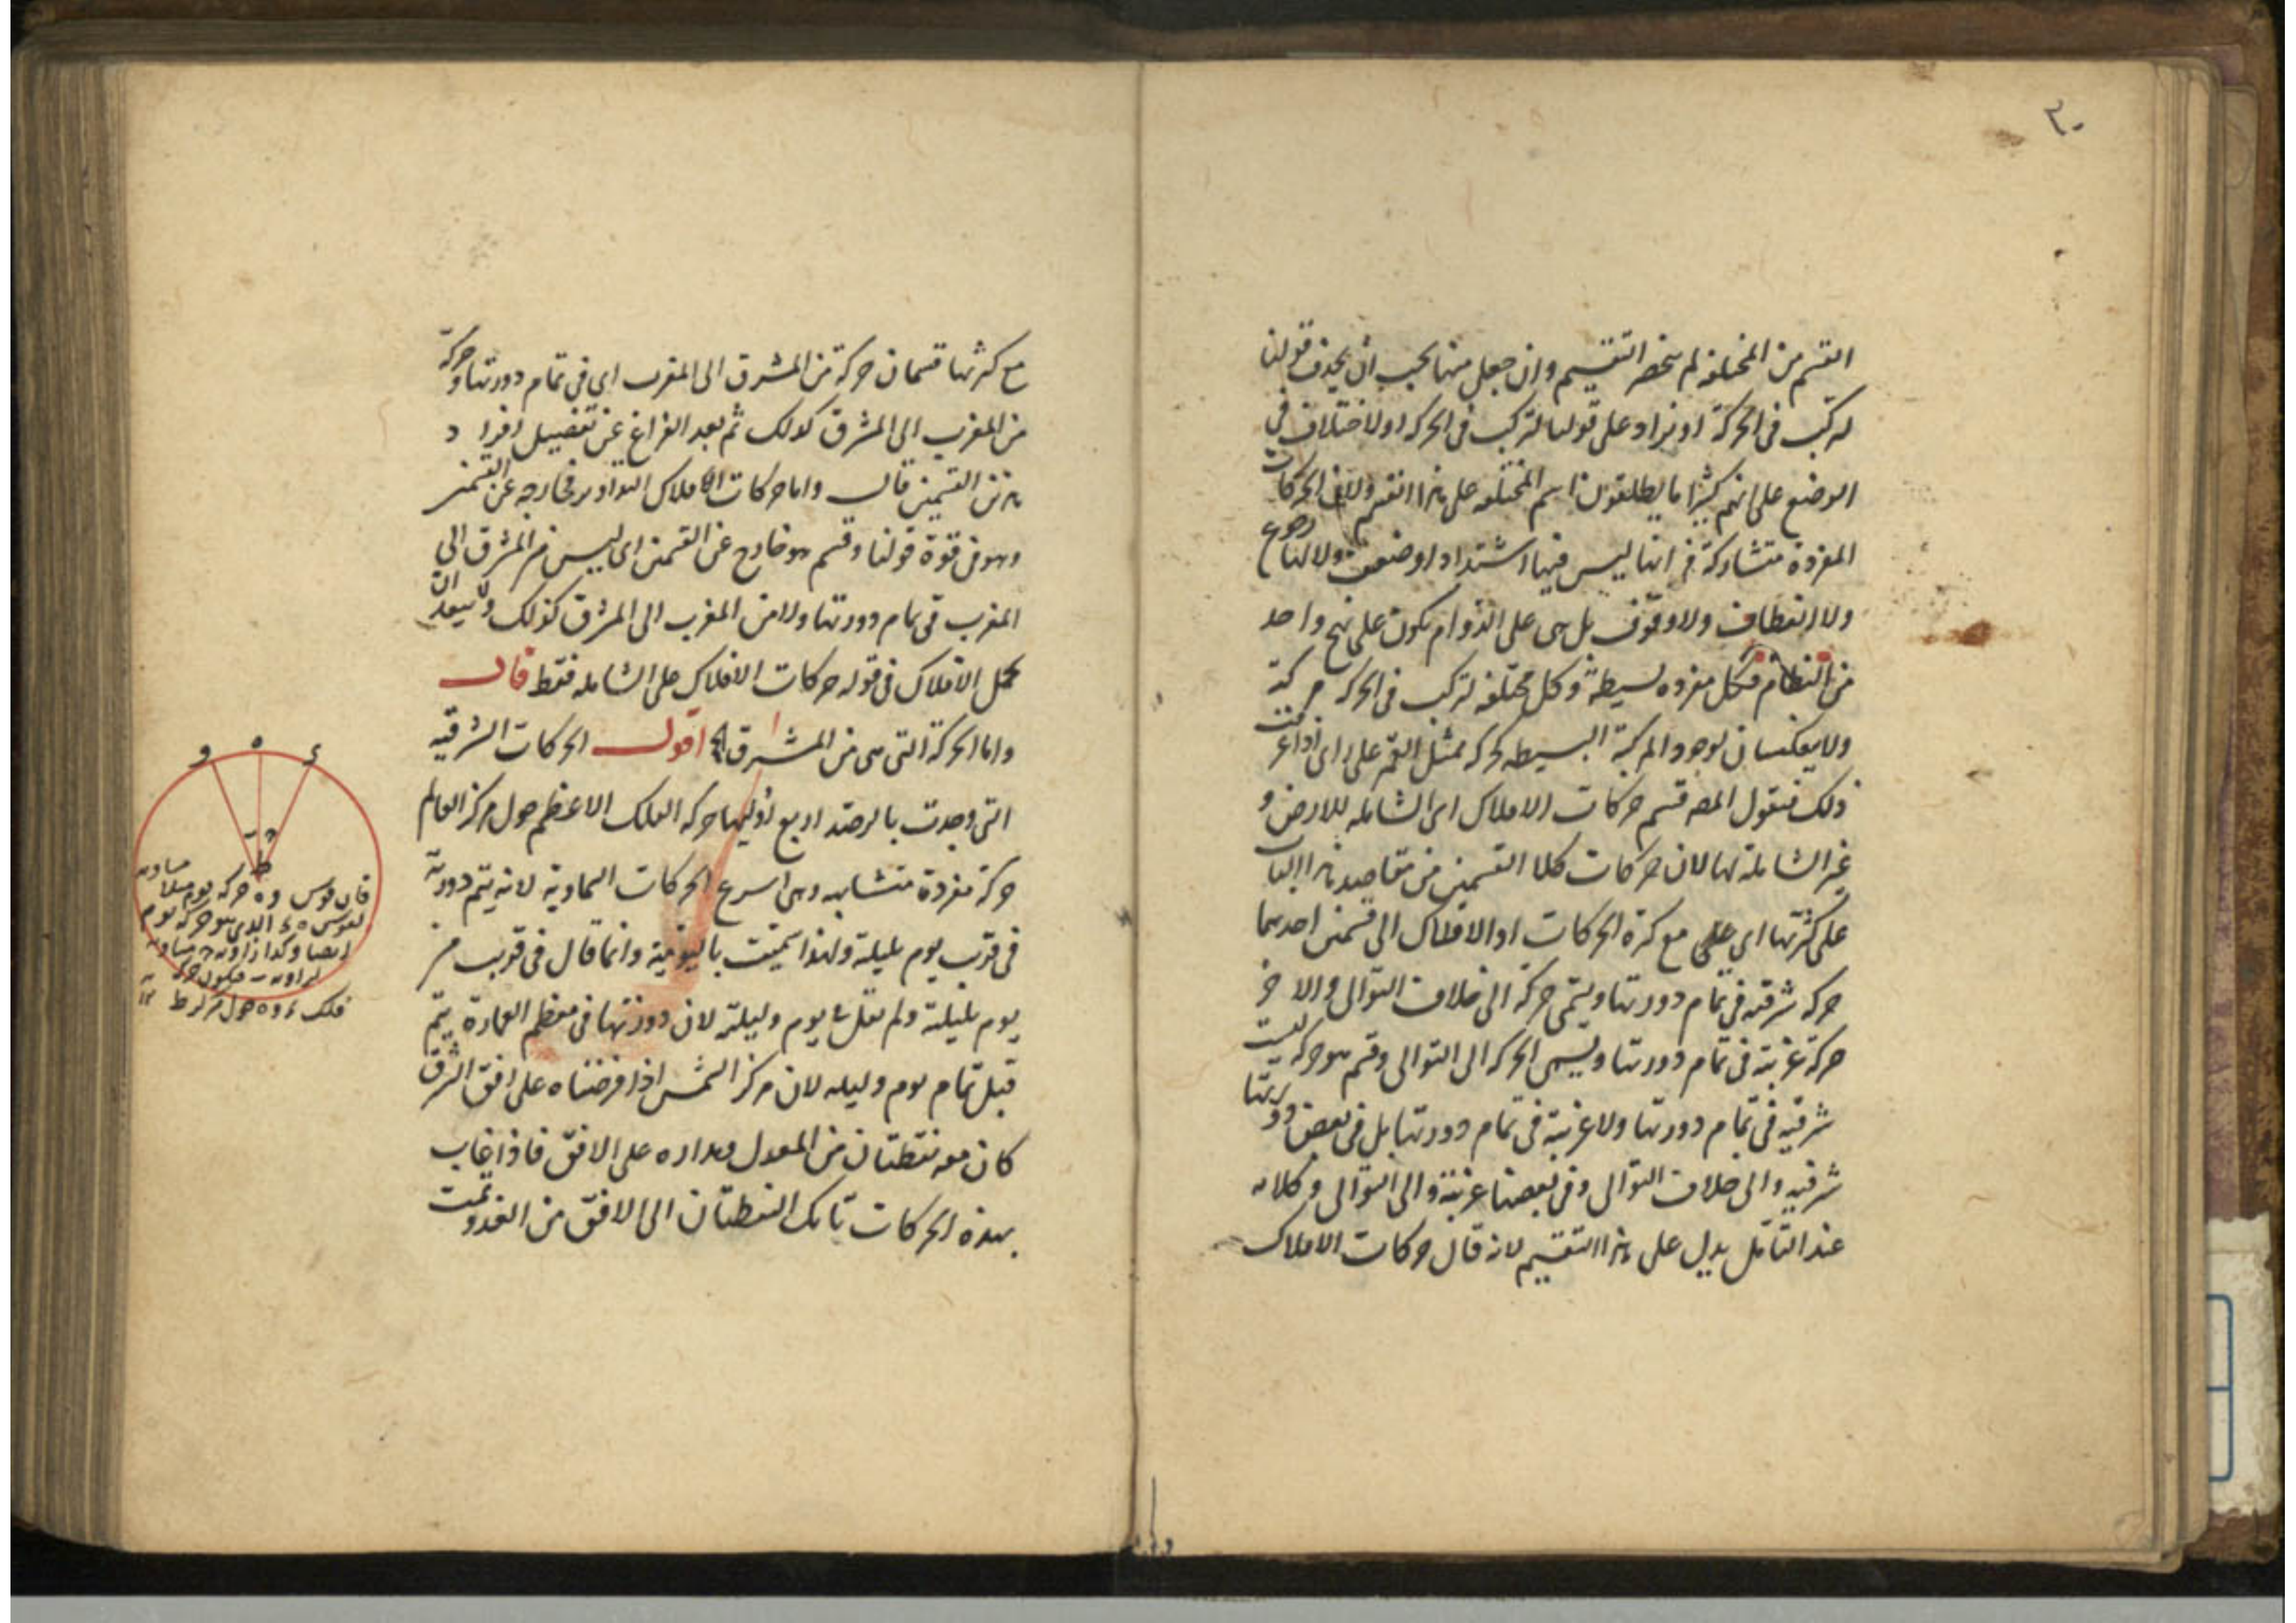 ٣٠
القسم من المختلفة لم ينحصر التقسيم وان جعل منها يجب ان يحذف قولنا
لتركب فى الحركة او يزاد على قولنا لتركب فى الحركة او لاختلاف فى
الوضع على انهم كثيرا ما يطلقون اسم المختلفة على هذا القسم ولان الحركات
المفردة متشاركة فى انها ليس فيها اشتداد او ضعف ولا لها رجوع
ولا انعطاف ولا وقوف بل هى على الدوام تكون على نهج واحد
من النظام فكل مفردة بسيطة وكل مختلفة لتركب فى الحركة مركبة
ولا يعكسان لوجود المركبة البسيطة كحركة ممثل القمر على راى اذا عرفت
ذلك فنقول المص قسم حركات الافلاك اى الشاملة للارض و
غير الشاملة لها لان حركات كلا القسمين من مقاصد هذا الباب
على كثرتها اى على مع كثرة الحركات او الافلاك الى قسمين احدهما
حركة شرقية فى تمام دورتها ويسمى حركة الى خلاف التوالى والاخر
حركة غربية فى تمام دورتها ويسمى الحركة الى التوالى وقسم هو حركة ليست
شرقية فى تمام دورتها ولا غربية فى تمام دورتها بل فى بعض دورتها
شرقية والى خلاف التوالى وفى بعضها غربية والى التوالى وكلامه
عند التامل يدل على هذا التقسيم لانه قال حركات الافلاك
مع كثرتها قسمان حركة من المشرق الى المغرب اى فى تمام دورتها وحركة
من المغرب الى المشرق كذلك ثم بعد الفراغ عن تفصيل افراد
هذين القسمين قال واما حركات الافلاك التداوير فخارجه عن القسمين
وهو فى قوة قولنا وقسم هو خارج عن القسمين اى ليس من المشرق الى
المغرب فى تمام دورتها ولا من المغرب الى المشرق كذلك ولا يبعد ان
يحمل الافلاك فى قوله حركات الافلاك على الشاملة فقط قال
واما الحركة التى هى من المشرق الخ اقول الحركات الشرقية
التى وجدت بالرصد اربع اوليها حركة الفلك الاعظم حول مركز العالم
حركة مفردة متشابهه وهى اسرع الحركات السماوية لانه يتم دورته
فى قرب يوم بليلة ولهذا سميت باليومية وانما قال فى قريب من
يوم بليلة ولم يقل فى يوم وليلة لان دورتها فى معظم العمارة يتم
قبل تمام يوم وليله لان مركز الشمس اذا فرضناه على افق الشرق
كان معه نقطتان من المعدل ومداره على الافق فاذا غاب
بهذه الحركات تانك النقطتان الى الافق من الغد وتمت
و ه ء
ط
فان قوس وه حركة يوم مثلا مساوية
لقوس ه ء الذى هو حركة يوم
ايضا وكذا زاوية مساوية
لزاوية فيكون حركة
فلك ء ه و حول مركز ط